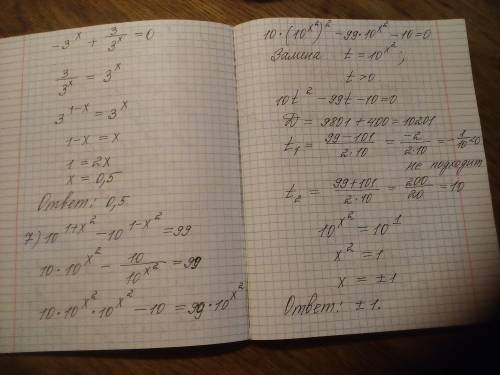 -3^x + 3/3^x = 0
3/3^x = 3^x
3^(1-x) = 3^x
1-x = x
1 = 2x
x = 0,5
Ответ: 0,5.
7) 10^(1+x²) - 10^(1-x²) = 99
10·10^(x²) - 10/10^(x²) = 99
10·10^(x²)·10^(x²) - 10 = 99·10^(x²)
10·(10^(x²))² - 99·10^(x²) - 10 = 0
Замена t = 10^(x²),
t > 0
10t² - 99t - 10 = 0
D = 9801 + 400 = 10201
t₁ = (99-101)/(2·10) = -2/(2·10) = -1/10 < 0
не подходит
t₂ = (99+101)/(2·10) = 200/20 = 10
10^(x²) = 10^1
x² = 1
x = ±1
Ответ: ±1.